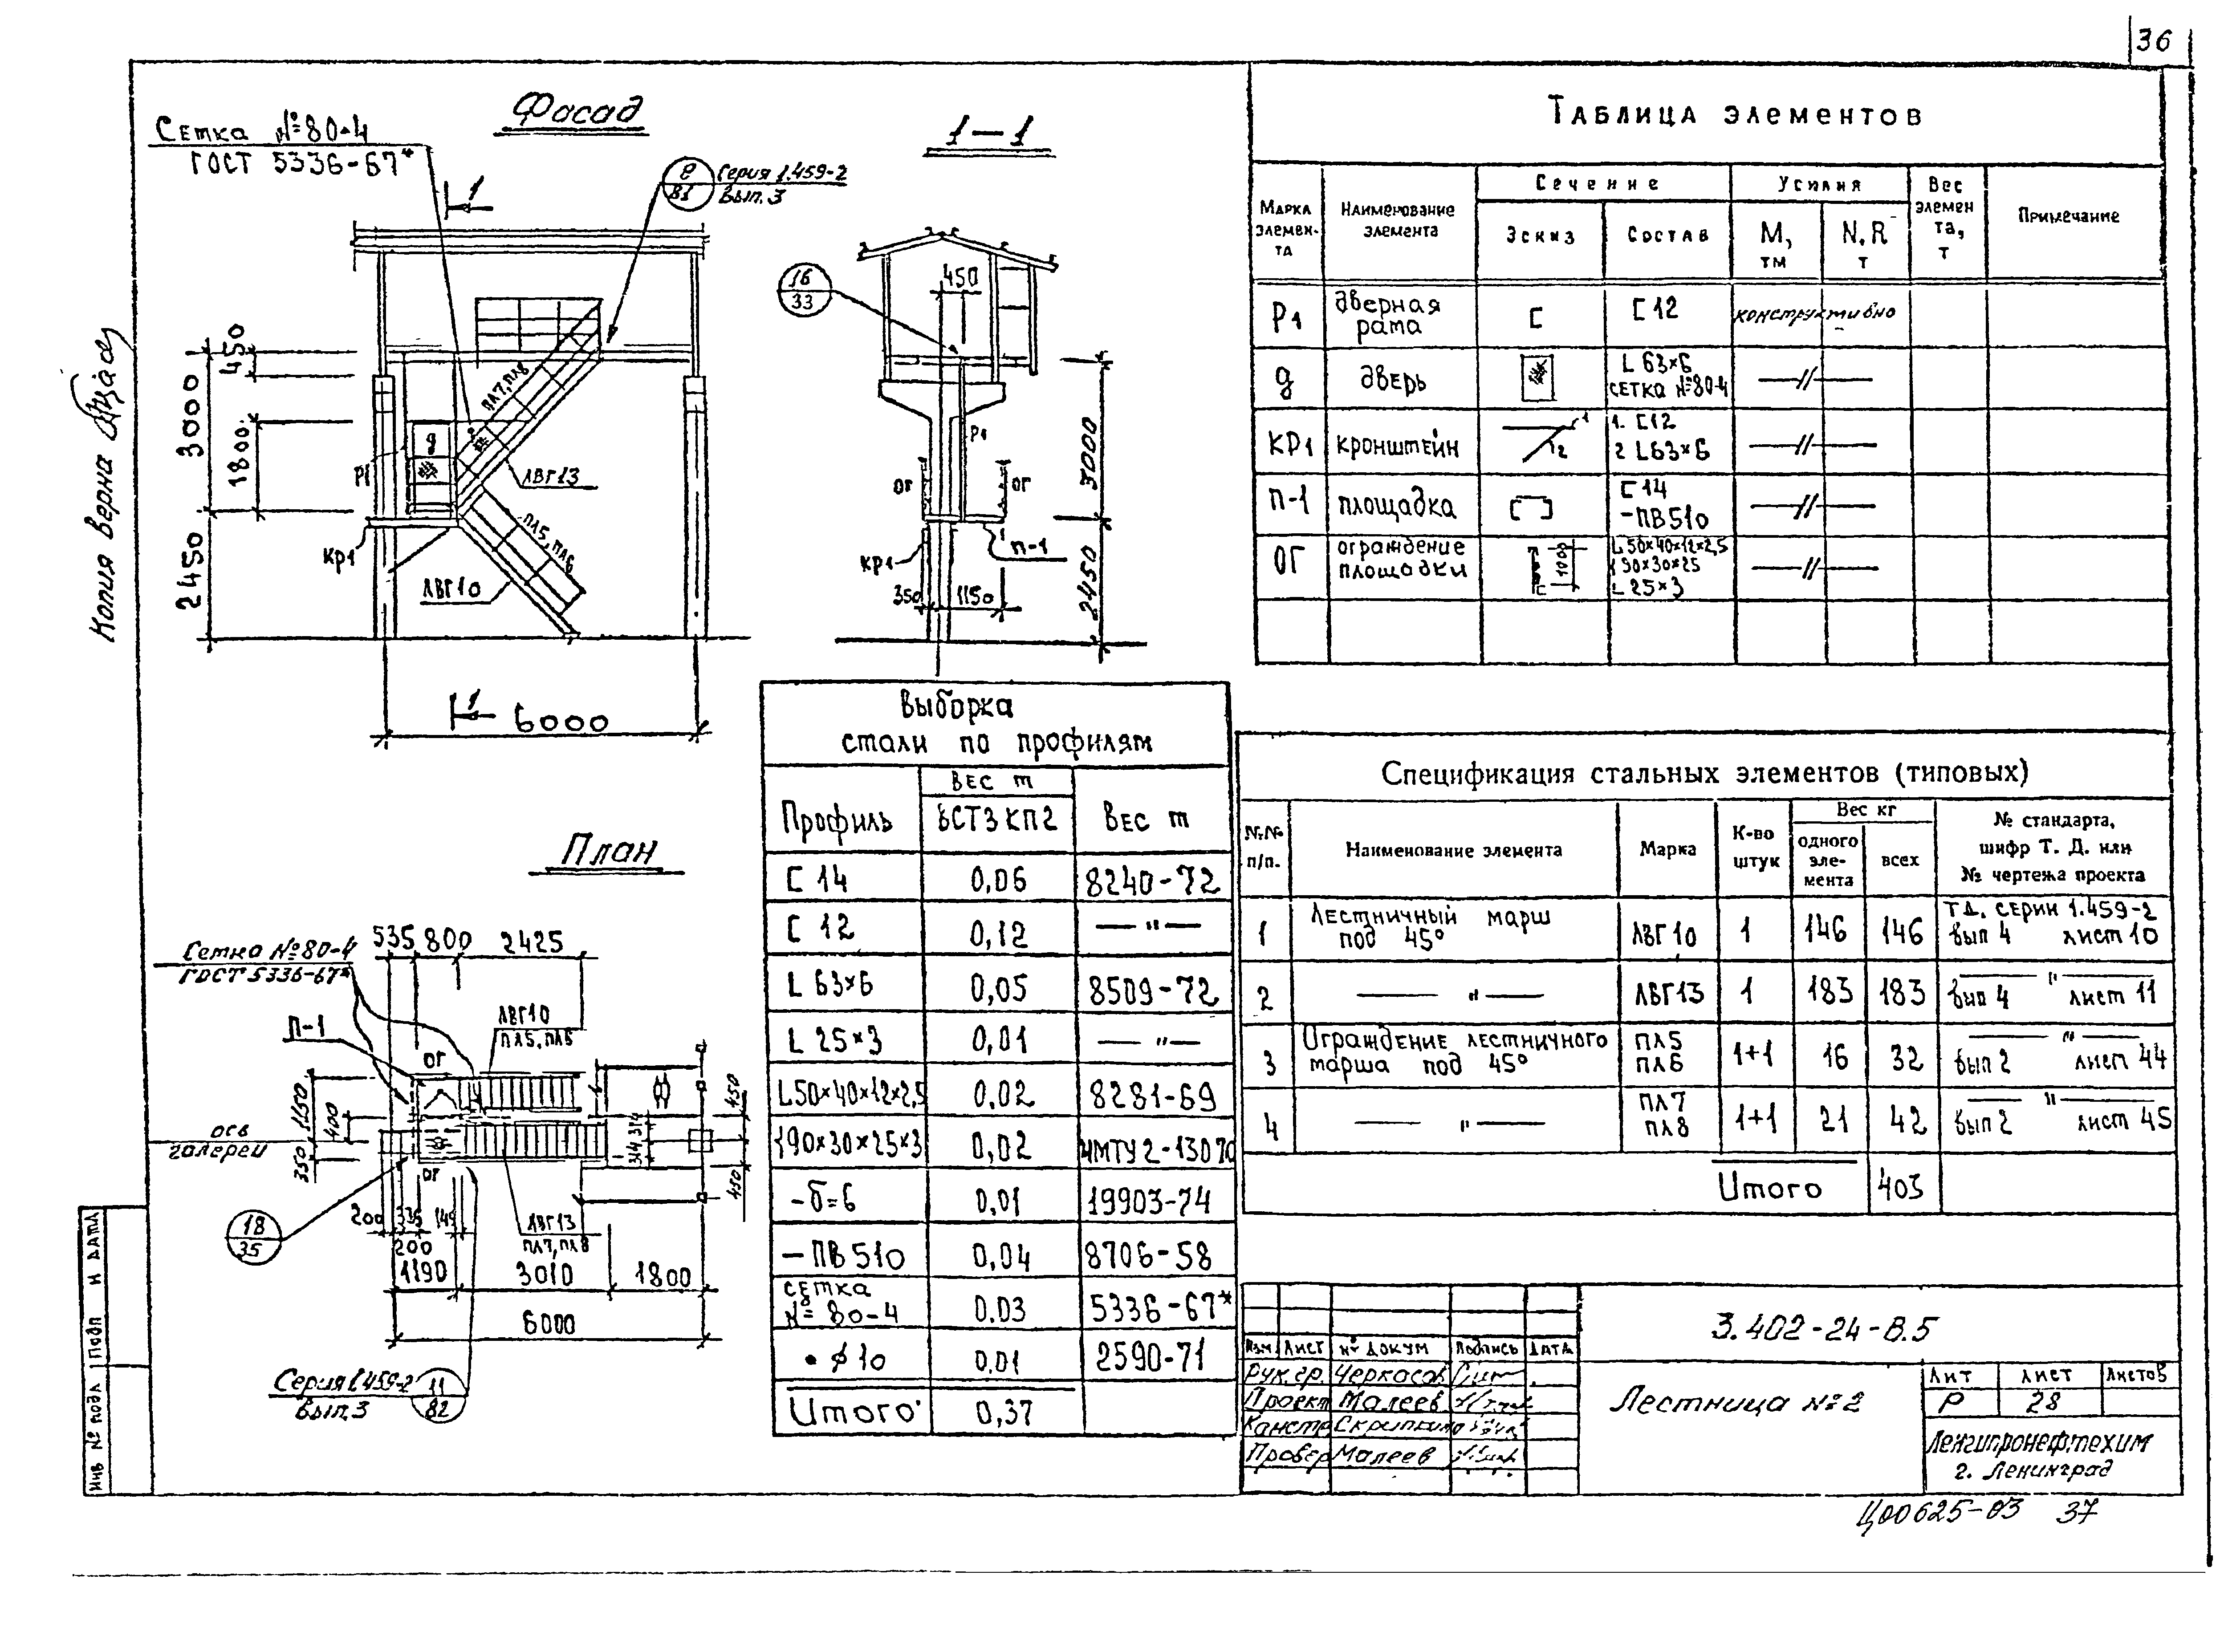 36
Копия верна
Фасад
Сетка №80-4
ГОСТ 5336-67*
1
Серия 1.459-2
Вып. 3
450
3000
1800
2450
ПЛ7, ПЛ8
д
Р1
ЛВГ13
КР1
ПЛ5, ПЛ6
ЛВГ10
1
6000
1-1
16
33
450
Р1
ОГ
ОГ
КР1
П-1
350
1150
3000
2450
План
535 800 2425
Сетка №80-4
ГОСТ 5336-67*
П-1
ОГ
ЛВГ10
ПЛ5, ПЛ6
1150
400
350
ось
галереи
ОГ
450
450
18
35
200
200
ЛВГ13
ПЛ7, ПЛ8
1190 3010 1800
6000
Серия 1.459-2
Вып.3
11
82
Выборка
стали по профилям
Профиль
Вес т
ВСТ3КП2
Вес т
[ 14 0,06 8240-72
[ 12 0,12 — " —
L 63×6 0,05 8509-72
L 25×3 0,01 — " —
L50×40×12×2,5 0,02 8281-69
190×30×25×3 0,02 ЧМТУ2-130 70
-δ=6 0,01 19903-74
— ПВ510 0,04 8706-58
сетка
№ 80-4 0.03 5336-67*
• ϕ10 0,01 2590-71
Итого 0,37
Таблица элементов
Марка
элемен-
та
Наименование
элемента
Сечение
Эскиз
Состав
Усилия
М,
тм
N, R
т
Вес
элемен
та,
т
Примечание
Р1 дверная
рама [ [ 12 конструктивно
д дверь L 63×6
сетка №80-4 —//—
КР1 кронштейн 1 2 1. [12
2 L63×6 —//—
П-1 площадка [ ] [ 14
-ПВ510 —//—
ОГ ограждение
площадки L 50×40×12×2,5
L 25×3 —//—
Спецификация стальных элементов (типовых)
№№
п/п.
Наименование элемента
Марка
К-во
штук
Вес кг
одного
эле-
мента
всех
№ стандарта,
шифр Т. Д. или
№ чертежа проекта
1 Лестничный марш
под 45° ЛВГ10 1 146 146 Т.Д. серии 1.459-2
вып 4 лист 10
2 — " — ЛВГ13 1 183 183 — " —
вып 4 лист 11
3 Ограждение лестничного
марша под 45° ПЛ5
ПЛ6 1+1 16 32 — " —
вып 2 лист 44
4 — " — ПЛ7
ПЛ8 1+1 21 42 — " —
вып 2 лист 45
Итого 403
Изм. Лист № докум Подпись Дата
Рук.гр. Черкасов
Проект Малеев
Констр
Провер Малеев
3.402-24-В.5
Лестница №2
Лит Лист Листов
Р 28
Ленгипронефтехим
г. Ленинград
Инв № подл Подп и дата
Ц00625-03 37